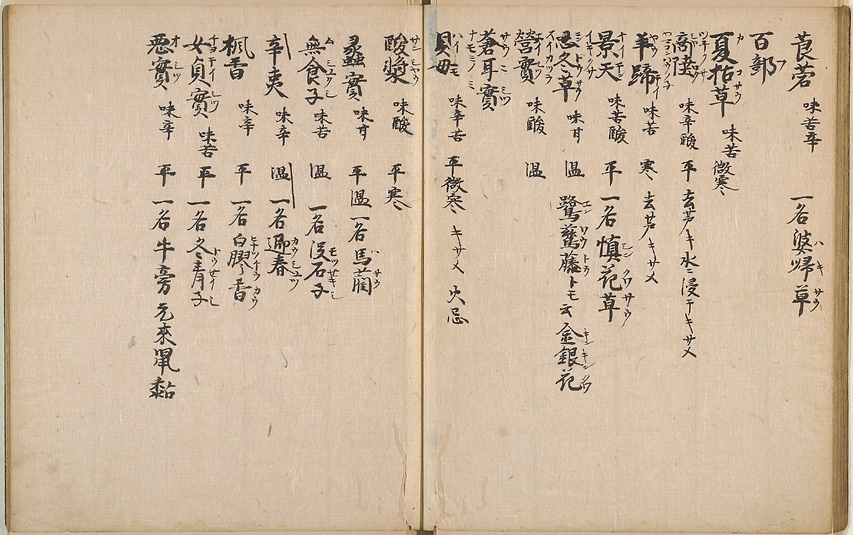 莨菪 味苦辛 一名婆帰草
百部
夏枯草 味苦微寒
商陸 味辛酸 平 去芦キ水ニ浸テキサメ
羊蹄 味苦 寒 去芦キサメ
景天 味苦酸 平 一名慎花草
忍冬草 味甘 温 鷺鷥藤トモ云 金銀花
營實 味酸 温
蒼耳實
貝母 味辛苦 平微寒 キサメ 火忌
酸漿 味酸 平寒
蠡實 味甘 平温 一名馬藺
無食子 味苦 温 一名没石子
辛夷 味辛 温 一名迎春
楓香 味辛 平 一名白膠香
女貞實 味苦 平 一名冬青子
悪實 味辛 平 一名牛旁 鼠黏